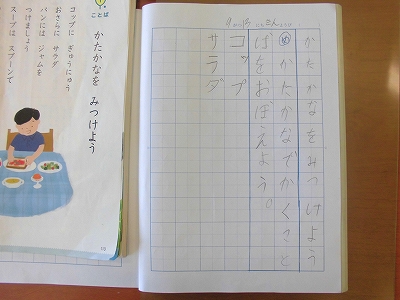 ことば
かたかなを みつけよう
コップに ぎゅうにゅう
おさらに サラダ
パンには ジャムを
つけましょう
スープは スプーンで
かたかなをみつけよう
め かたかなでかくこと
ばをおぼえよう。
コップ
サラダ